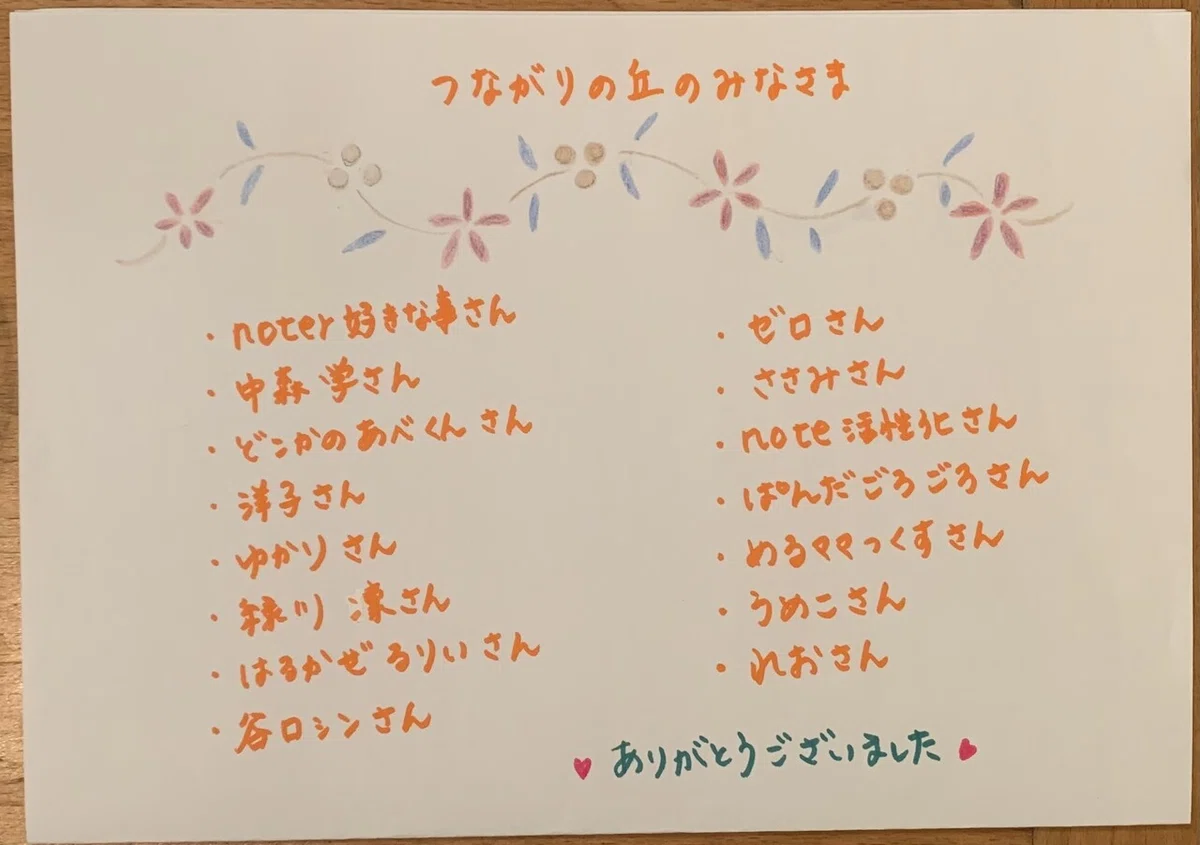 つながりの丘のみなさま
・noter好きな事さん
・中森 学さん
・どこかのあべくんさん
・洋子さん
・ゆかりさん
・緑川 凜さん
・はるかぜるりいさん
・谷口シンさん
・ゼロさん
・ささみさん
・note活性化さん
・ぱんだごろごろさん
・めるママっくすさん
・うめこさん
・れおさん
♥ ありがとうございました ♥